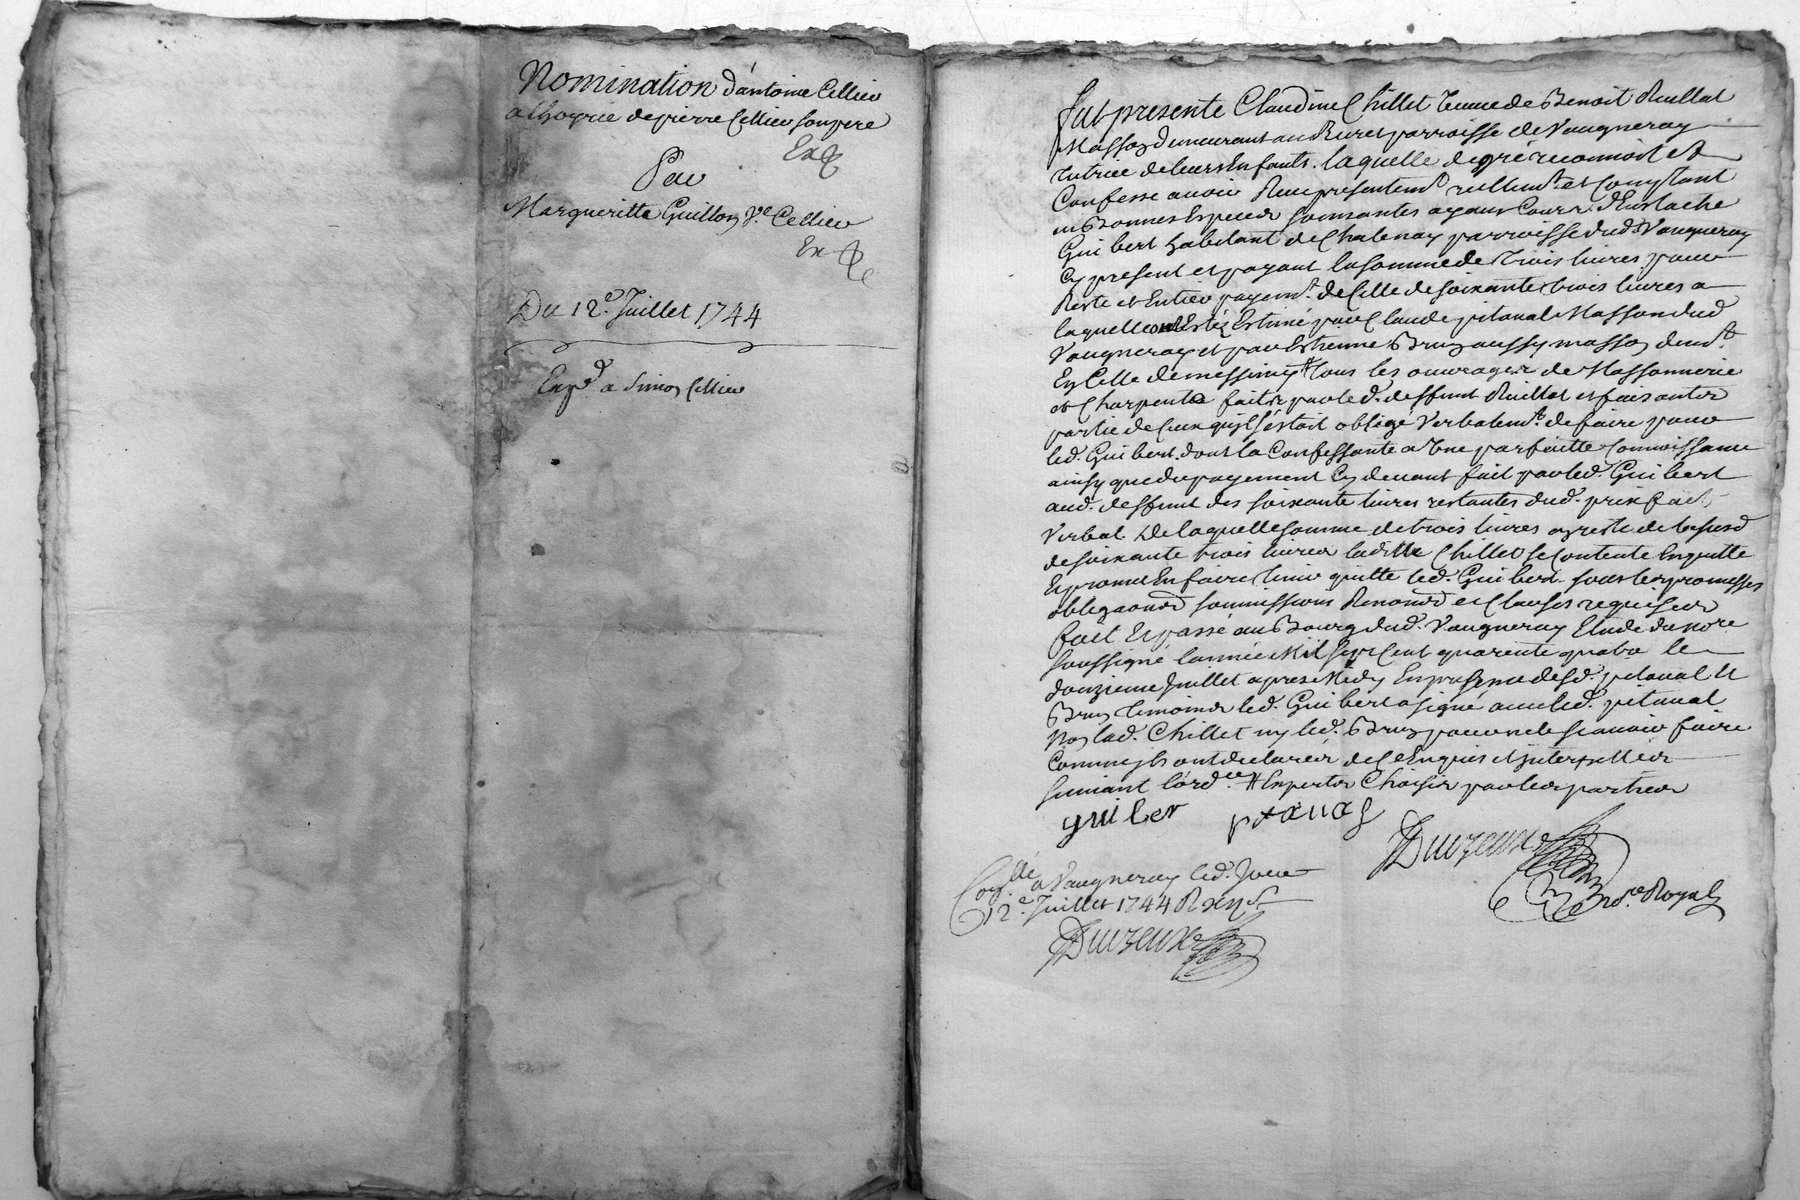 Nomination d'antoine Cellier
a lhoyrie de pierre Cellier son pere
Par
Margueritte Guillon Ve. Cellier
Du 12e. Juillet 1744
Expd a Simon Cellier
fut presente Claudine Chillet veuve de Benoit Ruillat
Masson demeurant au parroisse de Vaugneray
tutrice de leurs Enfants. laquelle de gré reconnoit et
Confesse avoir Reçu presentemt. reellemt. et Comptant
en Bonnes Especes sonnantes ayant Cours d'Eustache
Guibert habitant de Chatenay parroisse dud. Vaugneray
Cy present et payant la somme de trois livres pour
Reste et Entier payemt. de Celle de soixante trois livres a
laquelle ont Estéz Estimé par Claude pitaval Masson dud.
Vaugneray et par Estienne Brun aussy masson demt.
En Celle de messimy # tous les ouvrages de Massonnerie
et Charpente faits par led. deffunt Ruillat et faisantes
partie de Ceux quil s'estoit obligé verbalemt. de faire pour
led. Guibert. dont la Confessante a une parfaitte Connoissance
ainsy que du payement Cy devant fait par led. Guibert
aud. deffunt des soixante livres restantes dud. prix fait
verbal De laquelle somme de trois livres
de soixante trois livres laditte Chillet se Contente En quitte
Et promet En faire tenir quitte led. Guibert. sous les promesses
obligaons soumissions Renonons et Clauses requises
fait Et passé au Bourg dud. Vaugneray Etude du nore
soussigné l'année Mil sept Cent quarente quatre le
douzieme Juillet apres Midy En presence desd. pitaval Et
Brun temoins led. Guibert a signé avec led. pitaval
Non lad. Chillet ny led. Brun pour ne le scavoir faire
Comme ils ont declarés de Ce Enquis et Interpellés
suivant l'ordce. # Experts Choisis par les parties
guiber pitaval
Duvzeuxo
nore. Royal
Conllé a Vaugneray led. Jour
12e. Juillet 1744